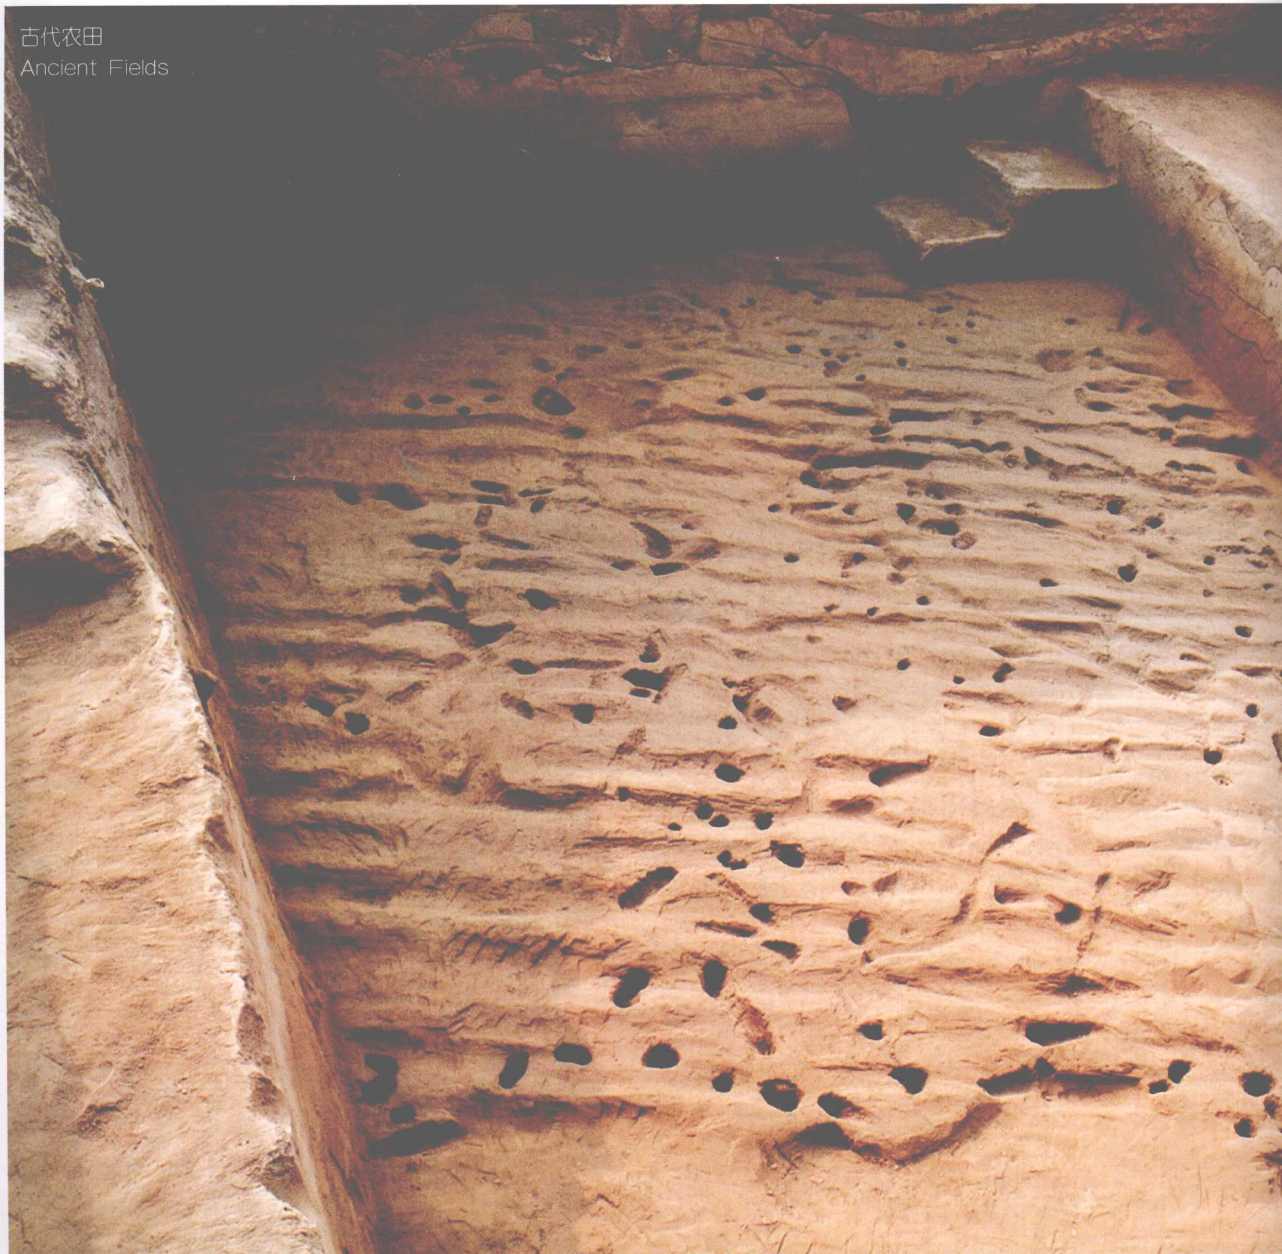 古代农田
Ancient Fields